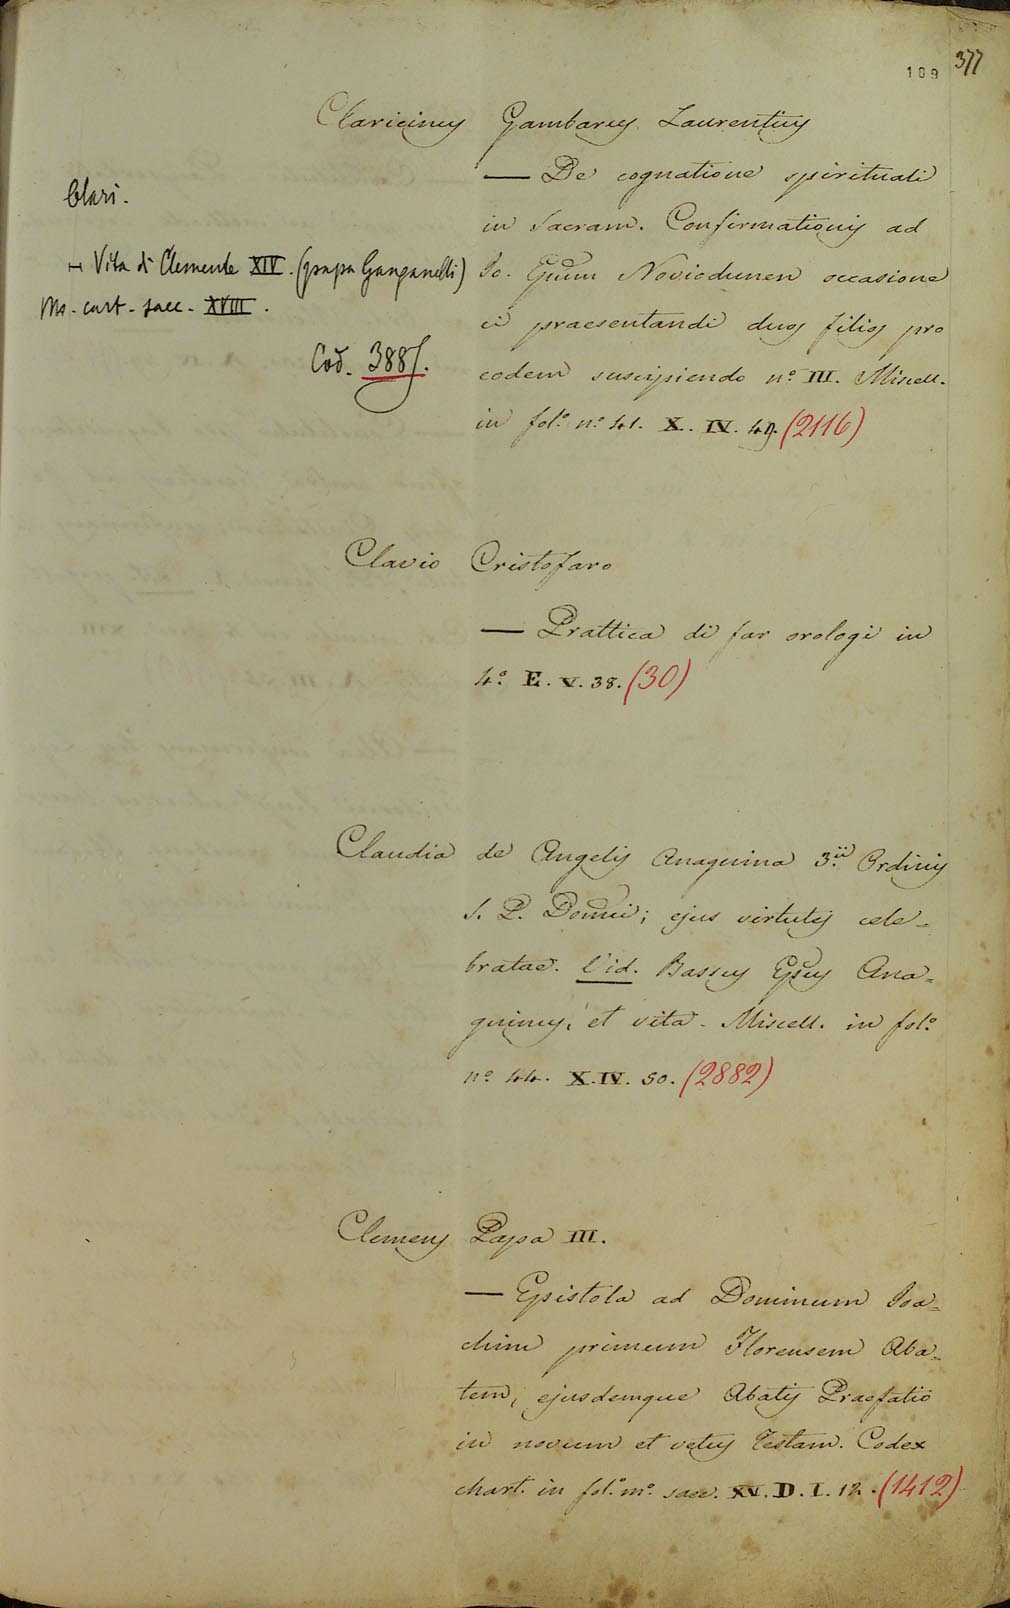 109 377
Claricinus Gambarus Laurentius
— De cognatione spirituali
in Sacram. Confirmationis ad
Io. Epũm Noviodunen occasione
ei praesentandi duos filios pro
eodem suscipiendo nº III. Miscell.
in folº nº 41. X. IV. 49. (2116)
Clari.
Vita di Clemente XIV. (papa Ganganelli)
Ms. cart. saec. XVIII.
Cod. 3885.
Clavio Cristofaro
— Prattica di far orologi in
4º E. V. 38. (30)
Claudia de Angelis Anagnina 3.ii Ordinis
S. P. Domci; ejus virtutes cele-
bratae. Vid. Bassus Epũs Ana-
gninus, et vita. Miscell. in folº
nº 44. X. IV. 50. (2882)
Clemens Papa III.
— Epistola ad Dominum Joa-
chim primum Florensem Aba-
tem, ejusdemque Abatis Praefatio
in novum et vetus Testam. Codex
chart. in fol. mº saec. XV. D. I. 12. (1412)